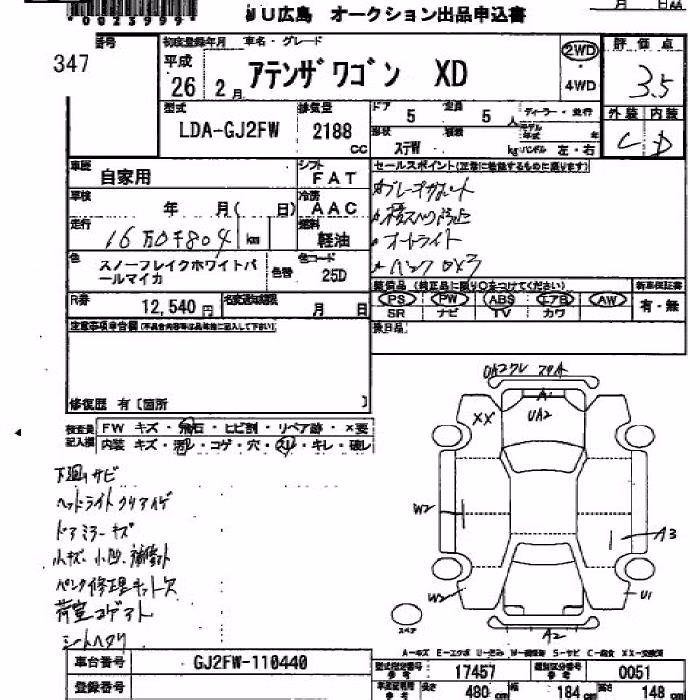 *0023999*
JU広島 オークション出品申込書
月 日AA
番号
347
初度登録年月 車名・グレード
平成 26 2月
アテンザワゴン XD
2WD
4WD
評価点
3.5
型式
LDA-GJ2FW
排気量
2188 cc
ドア 5 定員 5人
形状 ステW 積載 kg
ハンドル 左・右
外装 内装
C D
車歴
自家用
シフト
FAT
セールスポイント(正常に機能するものに限ります)
車検
年 月( 日)
冷房
AAC
横スベリ防止
走行
16万0千804 km
燃料
軽油
オートライト
色
スノーフレイクホワイトパールマイカ
色替
色コード
25D
装備品 (純正品に限り○をつけてください)
新車保証書
PS PW ABS エアB AW
SR ナビ TV カワ
有・無
R券
12,540円
名変通知期限
月 日
注意事項申告欄
修復歴 有〔箇所 〕
検査員記入欄
FW キズ・飛石・ヒビ割・リペア跡・×要
内装 キズ・汚レ・コゲ・穴・スレ・キレ・破レ
下廻サビ
ヘッドライトクリアハゲ
ドアミラーキズ
小キズ、小凹、補修跡
パンク修理キット欠
荷室コゲアト
シートヘタリ
XX
A1
UA2
W2
A3
W2
U1
A2
スペア
A-キズ E-エクボ U-凹み W-補修跡 S-サビ C-腐食 XX-交換済
車台番号
GJ2FW-110440
登録番号
型式指定番号 参考
17457
類別区分番号 参考
0051
長さ 480 cm
幅 184 cm
高さ 148 cm